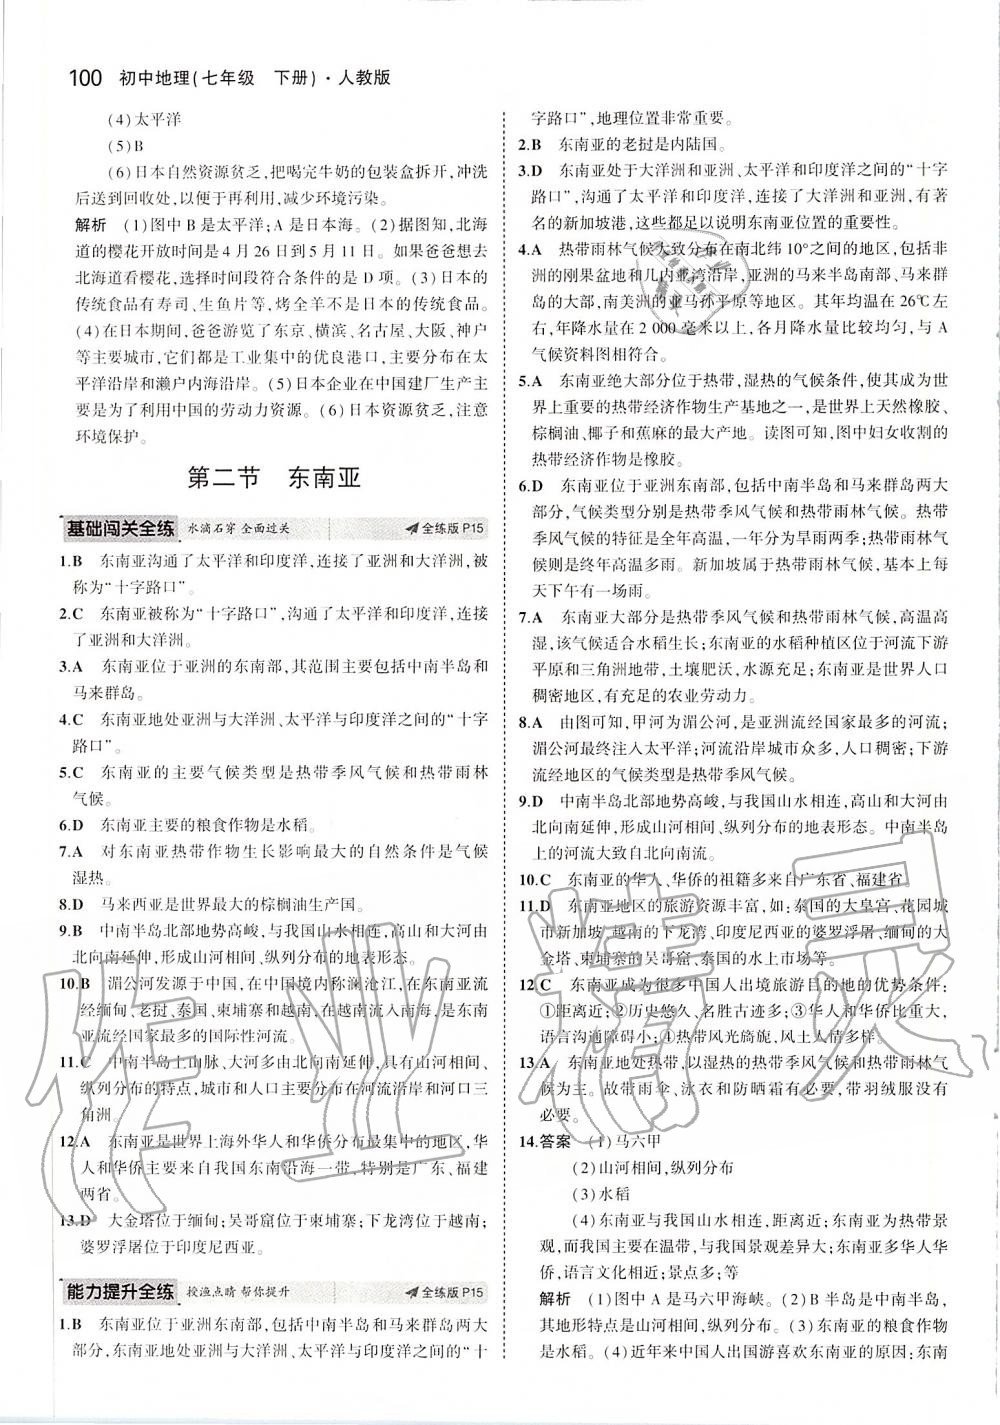 100 初中地理(七年级 下册)·人教版
(4)太平洋
(5)B
(6)日本自然资源贫乏,把喝完牛奶的包装盒拆开,冲洗
后送到回收处,以便于再利用,减少环境污染。
解析 (1)图中B是太平洋;A是日本海。(2)据图知,北海
道的樱花开放时间是4月26日到5月11日。如果爸爸想去
北海道看樱花,选择时间段符合条件的是D项。(3)日本的
传统食品有寿司、生鱼片等,烤全羊不是日本的传统食品。
(4)在日本期间,爸爸游览了东京、横滨、名古屋、大阪、神户
等主要城市,它们都是工业集中的优良港口,主要分布在太
平洋沿岸和濑户内海沿岸。(5)日本企业在中国建厂生产主
要是为了利用中国的劳动力资源。(6)日本资源贫乏,注意
环境保护。
第二节 东南亚
基础闯关全练 水滴石穿 全面过关 全练版P15
1.B 东南亚沟通了太平洋和印度洋,连接了亚洲和大洋洲,被
称为“十字路口”。
2.C 东南亚被称为“十字路口”,沟通了太平洋和印度洋,连接
了亚洲和大洋洲。
3.A 东南亚位于亚洲的东南部,其范围主要包括中南半岛和
马来群岛。
4.C 东南亚地处亚洲与大洋洲、太平洋与印度洋之间的“十字
路口”。
5.C 东南亚的主要气候类型是热带季风气候和热带雨林
气候。
6.D 东南亚主要的粮食作物是水稻。
7.A 对东南亚热带作物生长影响最大的自然条件是气候
湿热。
8.D 马来西亚是世界最大的棕榈油生产国。
9.B 中南半岛北部地势高峻,与我国山水相连,高山和大河由
北向南延伸,形成山河相间、纵列分布的地表形态。
10.B 湄公河发源于中国,在中国境内称澜沧江,在东南亚流
经缅甸、老挝、泰国、柬埔寨和越南,在越南流入南海,是东
南亚流经国家最多的国际性河流。
11.C 中南半岛上山脉、大河多由北向南延伸,具有山河相间、
纵列分布的特点,城市和人口主要分布在河流沿岸和河口三
角洲。
12.A 东南亚是世界上海外华人和华侨分布最集中的地区,华
人和华侨主要来自我国东南沿海一带,特别是广东、福建
两省。
13.D 大金塔位于缅甸;吴哥窟位于柬埔寨;下龙湾位于越南;
婆罗浮屠位于印度尼西亚。
能力提升全练 授渔点睛 帮你提升 全练版P15
1.B 东南亚位于亚洲东南部,包括中南半岛和马来群岛两大
部分,东南亚地处亚洲与大洋洲、太平洋与印度洋之间的“十
字路口”,地理位置非常重要。
2.B 东南亚的老挝是内陆国。
3.D 东南亚处于大洋洲和亚洲、太平洋和印度洋之间的“十字
路口”,沟通了太平洋和印度洋,连接了大洋洲和亚洲,有著
名的新加坡港,这些都足以说明东南亚位置的重要性。
4.A 热带雨林气候大致分布在南北纬10°之间的地区,包括非
洲的刚果盆地和几内亚湾沿岸,亚洲的马来半岛南部、马来群
岛的大部,南美洲的亚马孙平原等地区。其年均温在26℃左
右,年降水量在2 000毫米以上,各月降水量比较均匀,与A
气候资料图相符合。
5.A 东南亚绝大部分位于热带,湿热的气候条件,使其成为世
界上重要的热带经济作物生产基地之一,是世界上天然橡胶、
棕榈油、椰子和蕉麻的最大产地。读图可知,图中妇女收割的
热带经济作物是橡胶。
6.D 东南亚位于亚洲东南部,包括中南半岛和马来群岛两大
部分,气候类型分别是热带季风气候和热带雨林气候。热带
季风气候的特征是全年高温,一年分为旱雨两季;热带雨林气
候则是终年高温多雨。新加坡属于热带雨林气候,基本上每
天下午有一场雨。
7.A 东南亚大部分是热带季风气候和热带雨林气候,高温高
湿,该气候适合水稻生长;东南亚的水稻种植区位于河流下游
平原和三角洲地带,土壤肥沃,水源充足;东南亚是世界人口
稠密地区,有充足的农业劳动力。
8.A 由图可知,甲河为湄公河,是亚洲流经国家最多的河流;
湄公河最终注入太平洋;河流沿岸城市众多,人口稠密;下游
流经地区的气候类型是热带季风气候。
9.D 中南半岛北部地势高峻,与我国山水相连,高山和大河由
北向南延伸,形成山河相间、纵列分布的地表形态。中南半岛
上的河流大致自北向南流。
10.C 东南亚的华人、华侨的祖籍多来自广东省、福建省。
11.D 东南亚地区的旅游资源丰富,如:泰国的大皇宫、花园城
市新加坡、越南的下龙湾、印度尼西亚的婆罗浮屠、缅甸的大
金塔、柬埔寨的吴哥窟、泰国的水上市场等。
12.C 东南亚成为很多中国人出境旅游目的地的优势条件:
①距离近;②历史悠久、名胜古迹多;③华人和华侨比重大,
语言沟通障碍小;④热带风光旖旎,风土人情多样。
13.A 东南亚地处热带,以湿热的热带季风气候和热带雨林气
候为主。故带雨伞、泳衣和防晒霜有必要,带羽绒服没有
必要。
14.答案 (1)马六甲
(2)山河相间,纵列分布
(3)水稻
(4)东南亚与我国山水相连,距离近;东南亚为热带景
观,而我国主要在温带,与我国景观差异大;东南亚多华人华
侨,语言文化相近;景点多;等
解析 (1)图中A是马六甲海峡。(2)B半岛是中南半岛,
其地形特点是山河相间、纵列分布。(3)东南亚的粮食作物
是水稻。(4)近年来中国人出国游喜欢东南亚的原因:东南
作业精灵